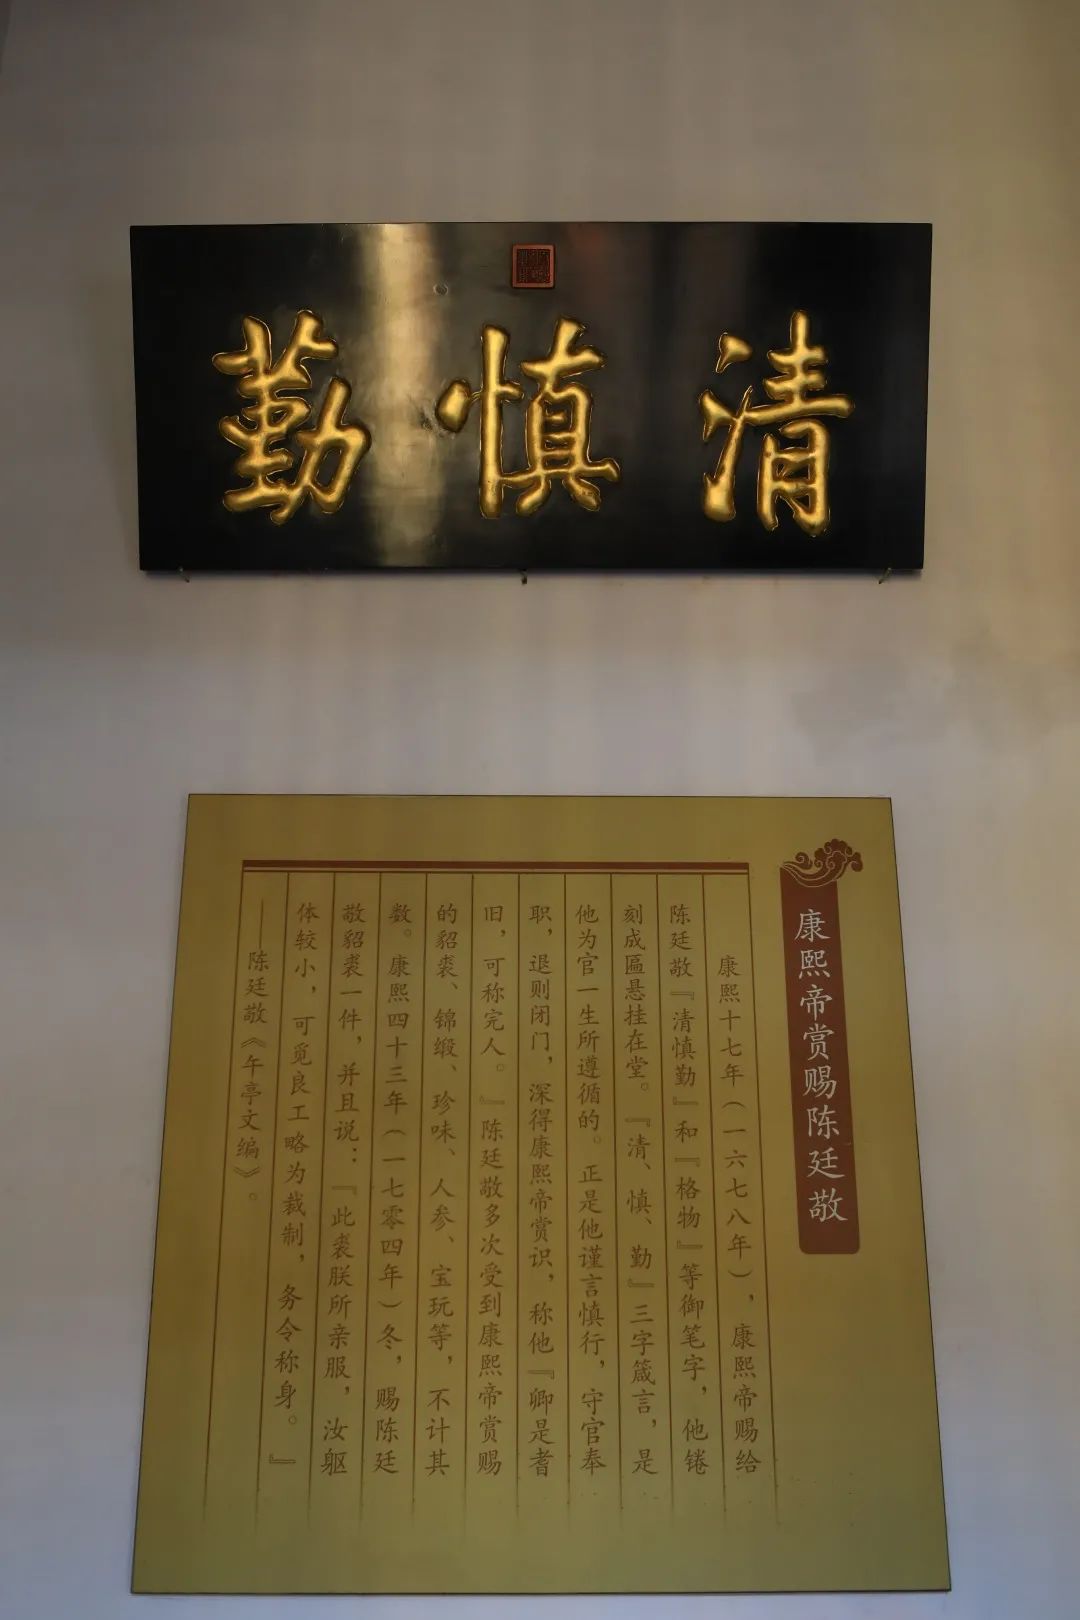 清慎勤
康熙帝赏赐陈廷敬
康熙十七年（一六七八年），康熙帝赐给
陈廷敬『清慎勤』和『格物』等御笔字，他锩
刻成匾悬挂在堂。『清、慎、勤』三字箴言，是
他为官一生所遵循的。正是他谨言慎行，守官奉
职，退则闭门，深得康熙帝赏识，称他『卿是耆
旧，可称完人。』陈廷敬多次受到康熙帝赏赐
的貂裘、锦缎、珍味、人参、宝玩等，不计其
数。康熙四十三年（一七零四年）冬，赐陈廷
敬貂裘一件，并且说：『此裘朕所亲服，汝躯
体较小，可觅良工略为裁制，务令称身。』
——陈廷敬《午亭文编》。